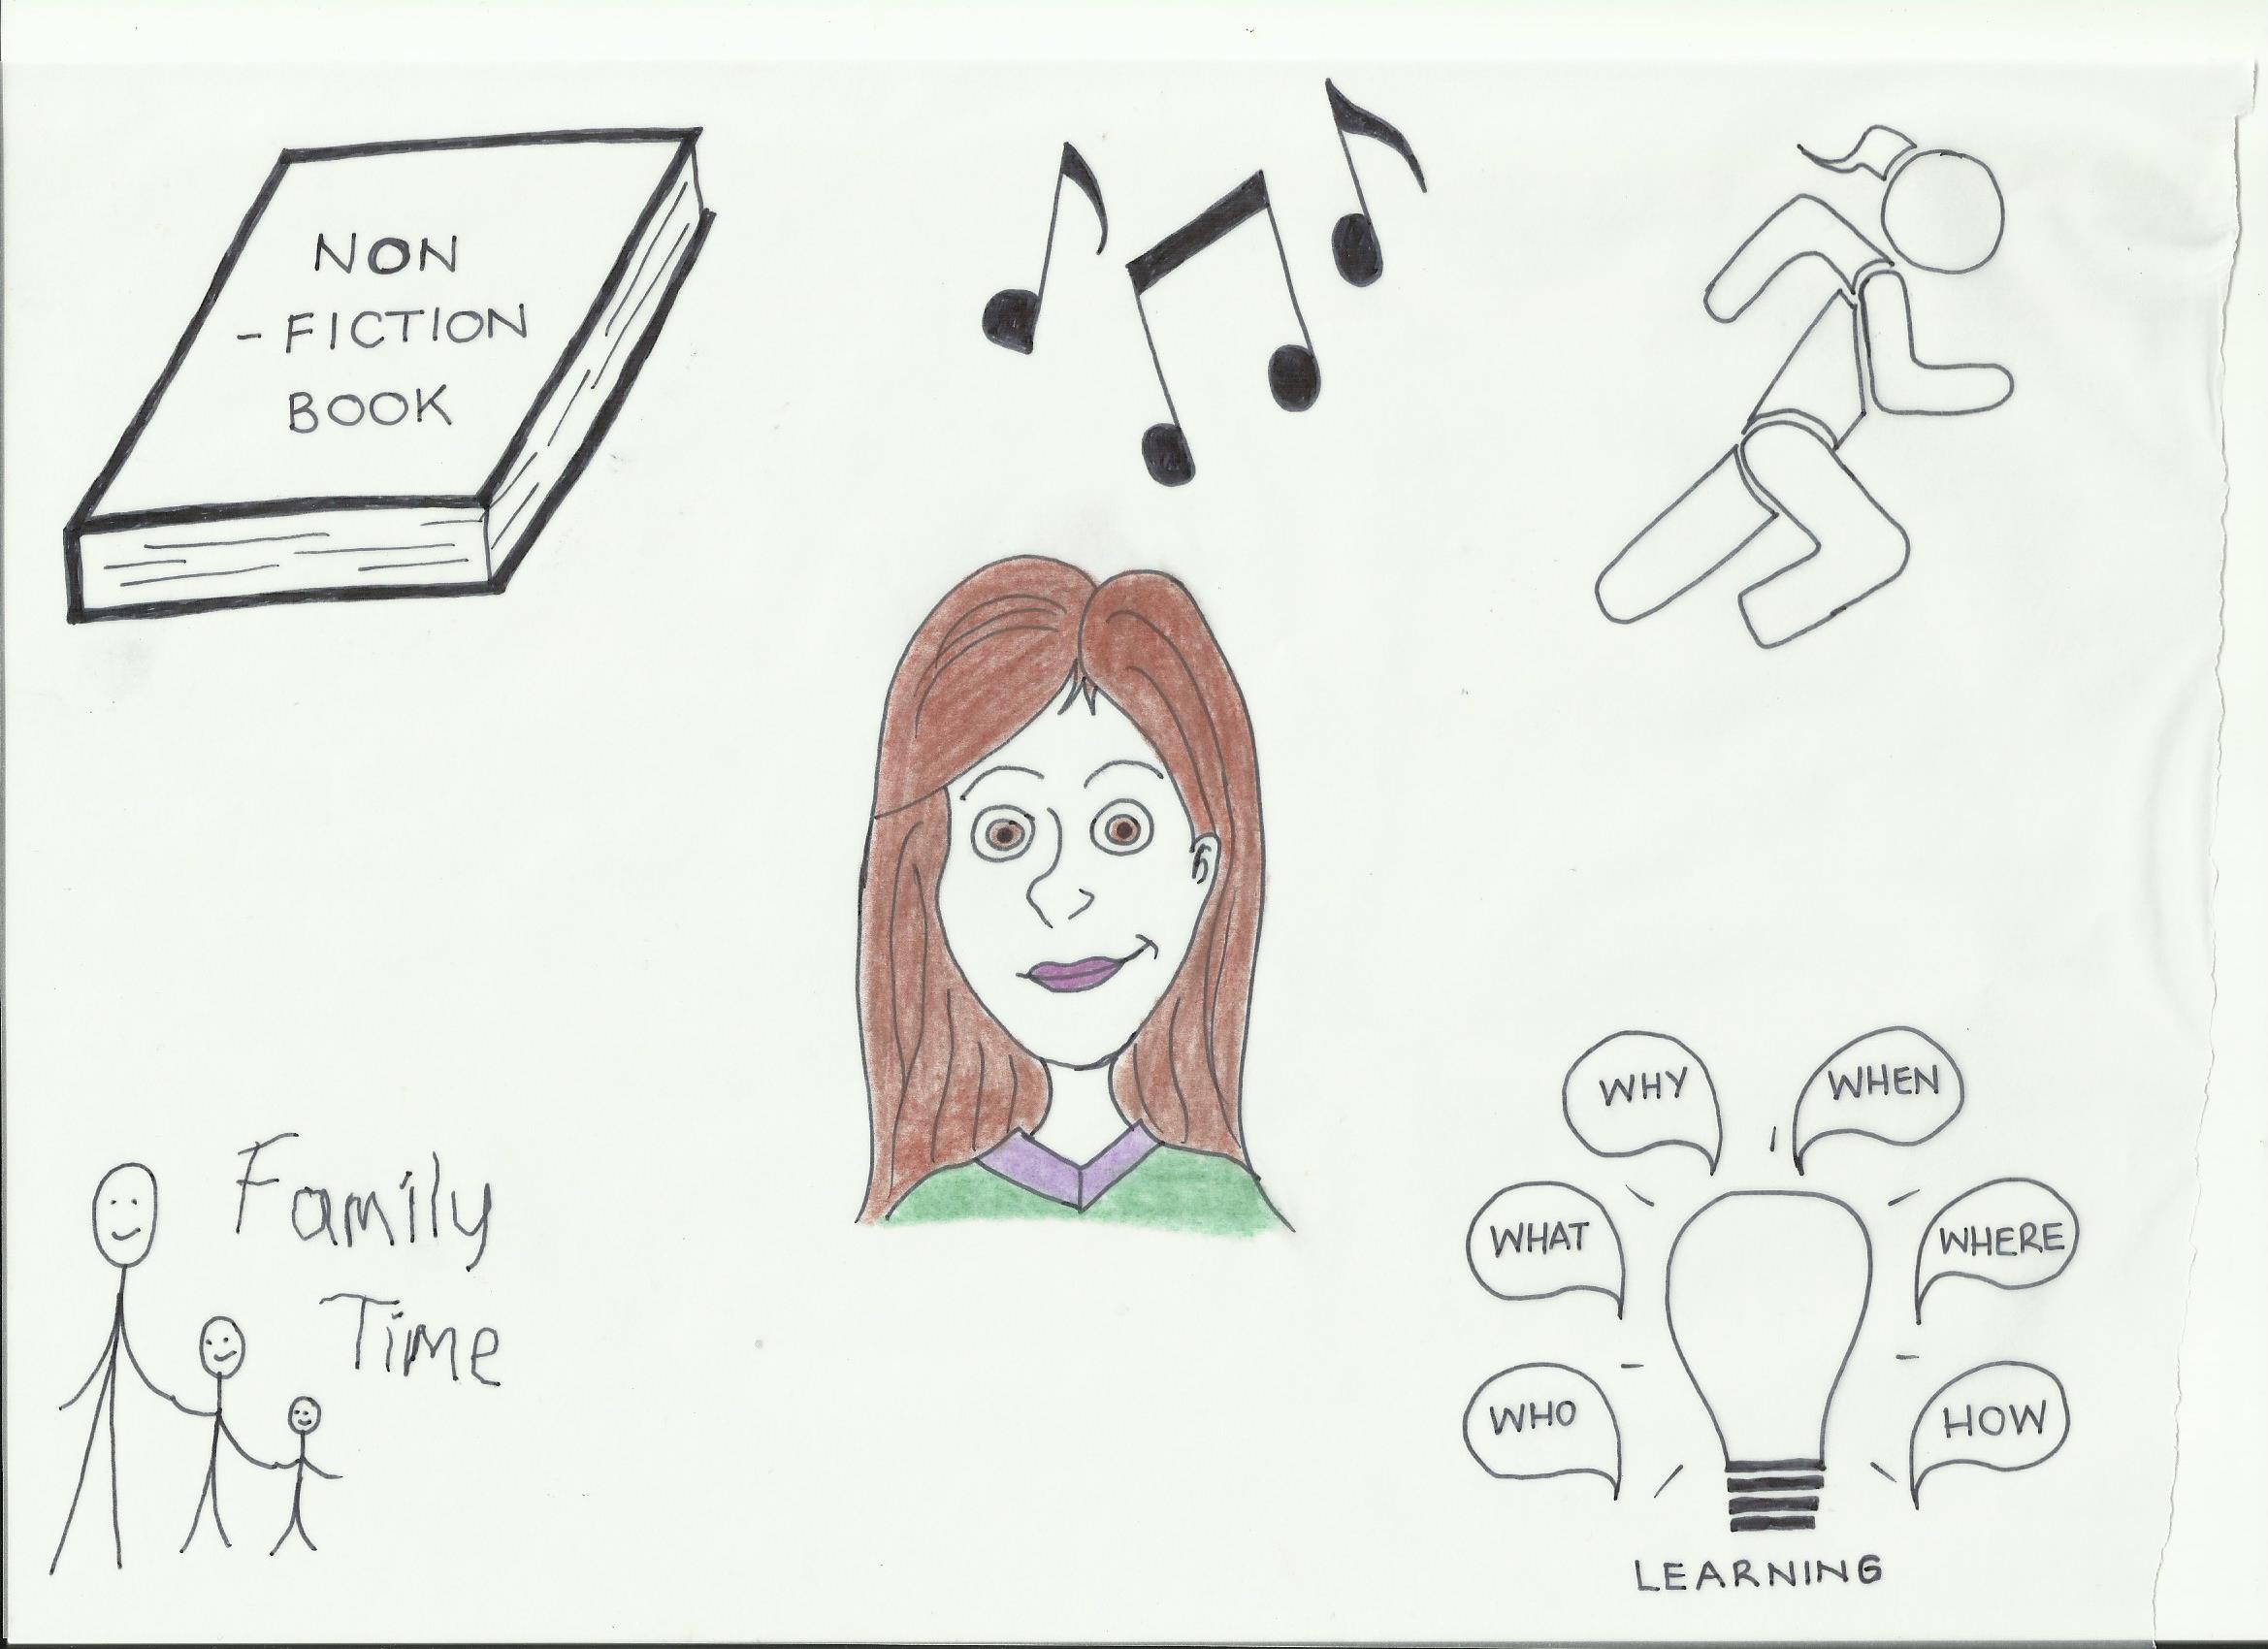 NON
- FICTION
BOOK
Family
Time
WHY
WHEN
WHAT
WHERE
WHO
HOW
LEARNING